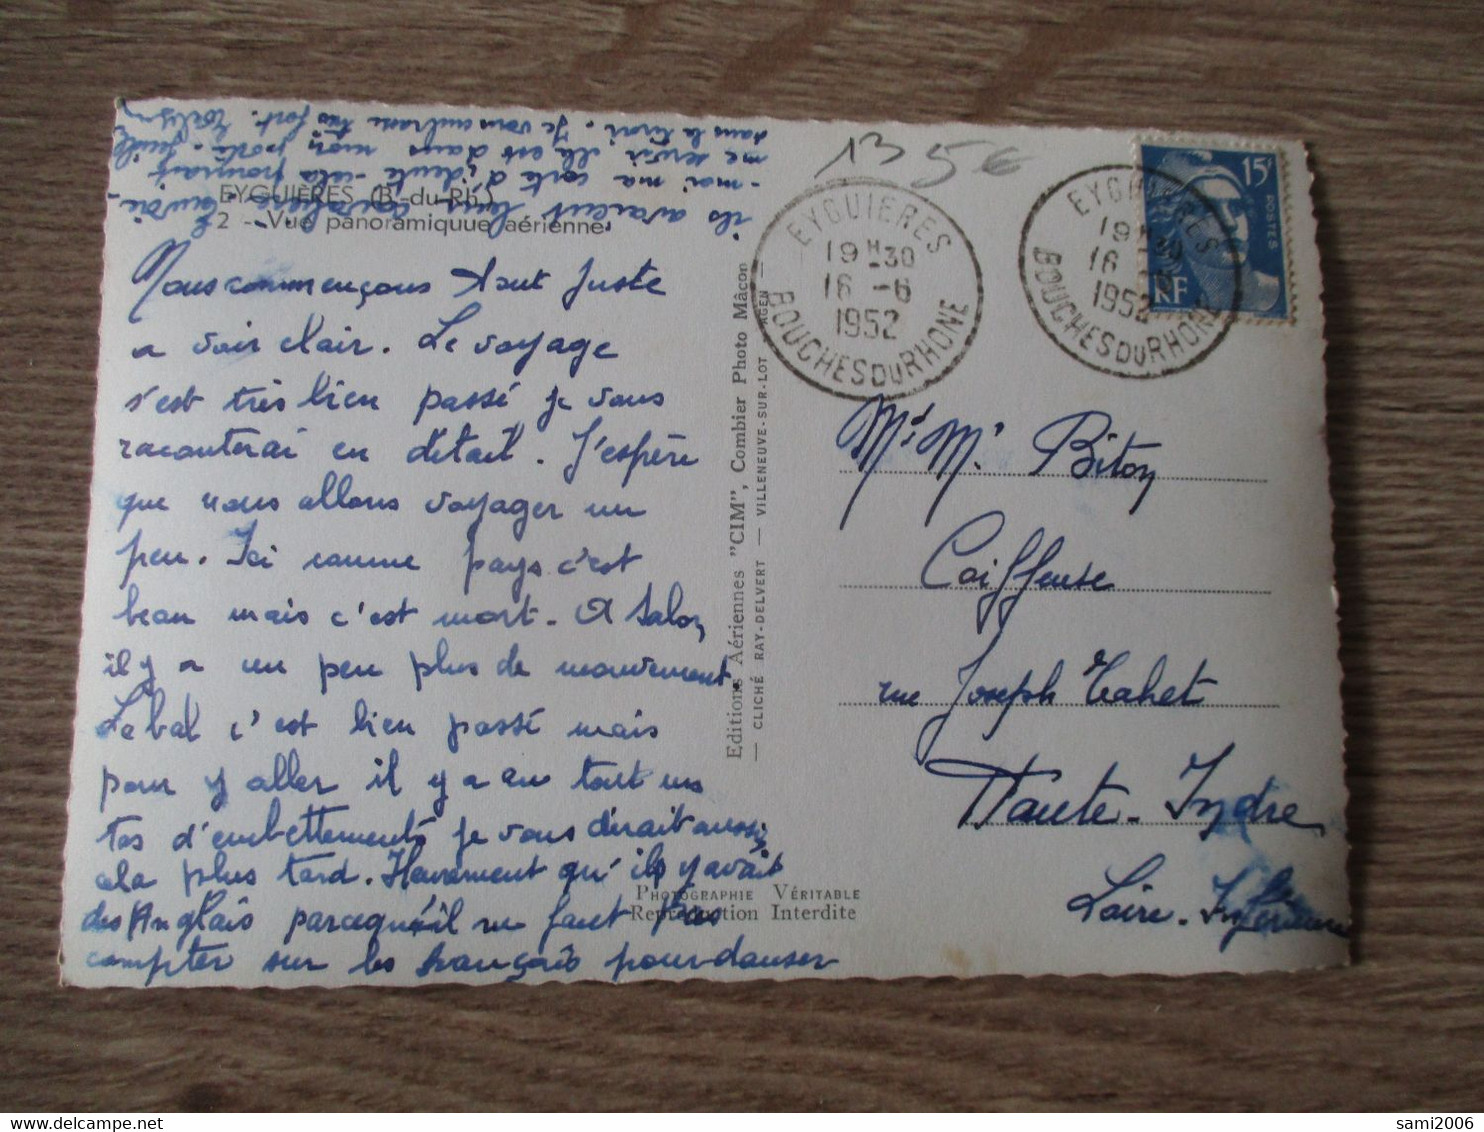 EYGUIÈRES (B.-du-Rh.)
2 - Vue panoramiquue aérienne
Nous commençons tout juste
a voir clair. Le voyage
s'est très bien passé je vous
raconterai en détail. J'espère
que nous allons voyager un
peu. Ici comme pays c'est
beau mais c'est mort. A Salon
il y a un peu plus de mouvement.
Le bal c'est bien passé mais
pour y aller il y a eu tout un
tas d'embettements je vous dirait aussi
cela plus tard. Heureusement qu'ils y avait
des Anglais parcequ'il ne faut pas
compter sur les français pour danser
ils avaient leurs cavalière.
-moi ma carte d'identité - cela pourrait
me servir elle est dans mon porte-feuille
dans le tiroir. Je vous embrasse très fort.
Editions Aériennes "CIM", Combier Photo Mâcon
— CLICHÉ RAY-DELVERT — VILLENEUVE-SUR-LOT AGEN —
PHOTOGRAPHIE VÉRITABLE
Reproduction Interdite
13 5€
EYGUIERES
19H30
16 -6
1952
BOUCHES DU RHONE
EYGUIERES
19H30
16 -6
1952
BOUCHES DU RHONE
15F
POSTES
RF
Md. M. Biton
Coiffeuse
rue Joseph Tahet
Haute-Indre
Loire-Inférieure
sami2006